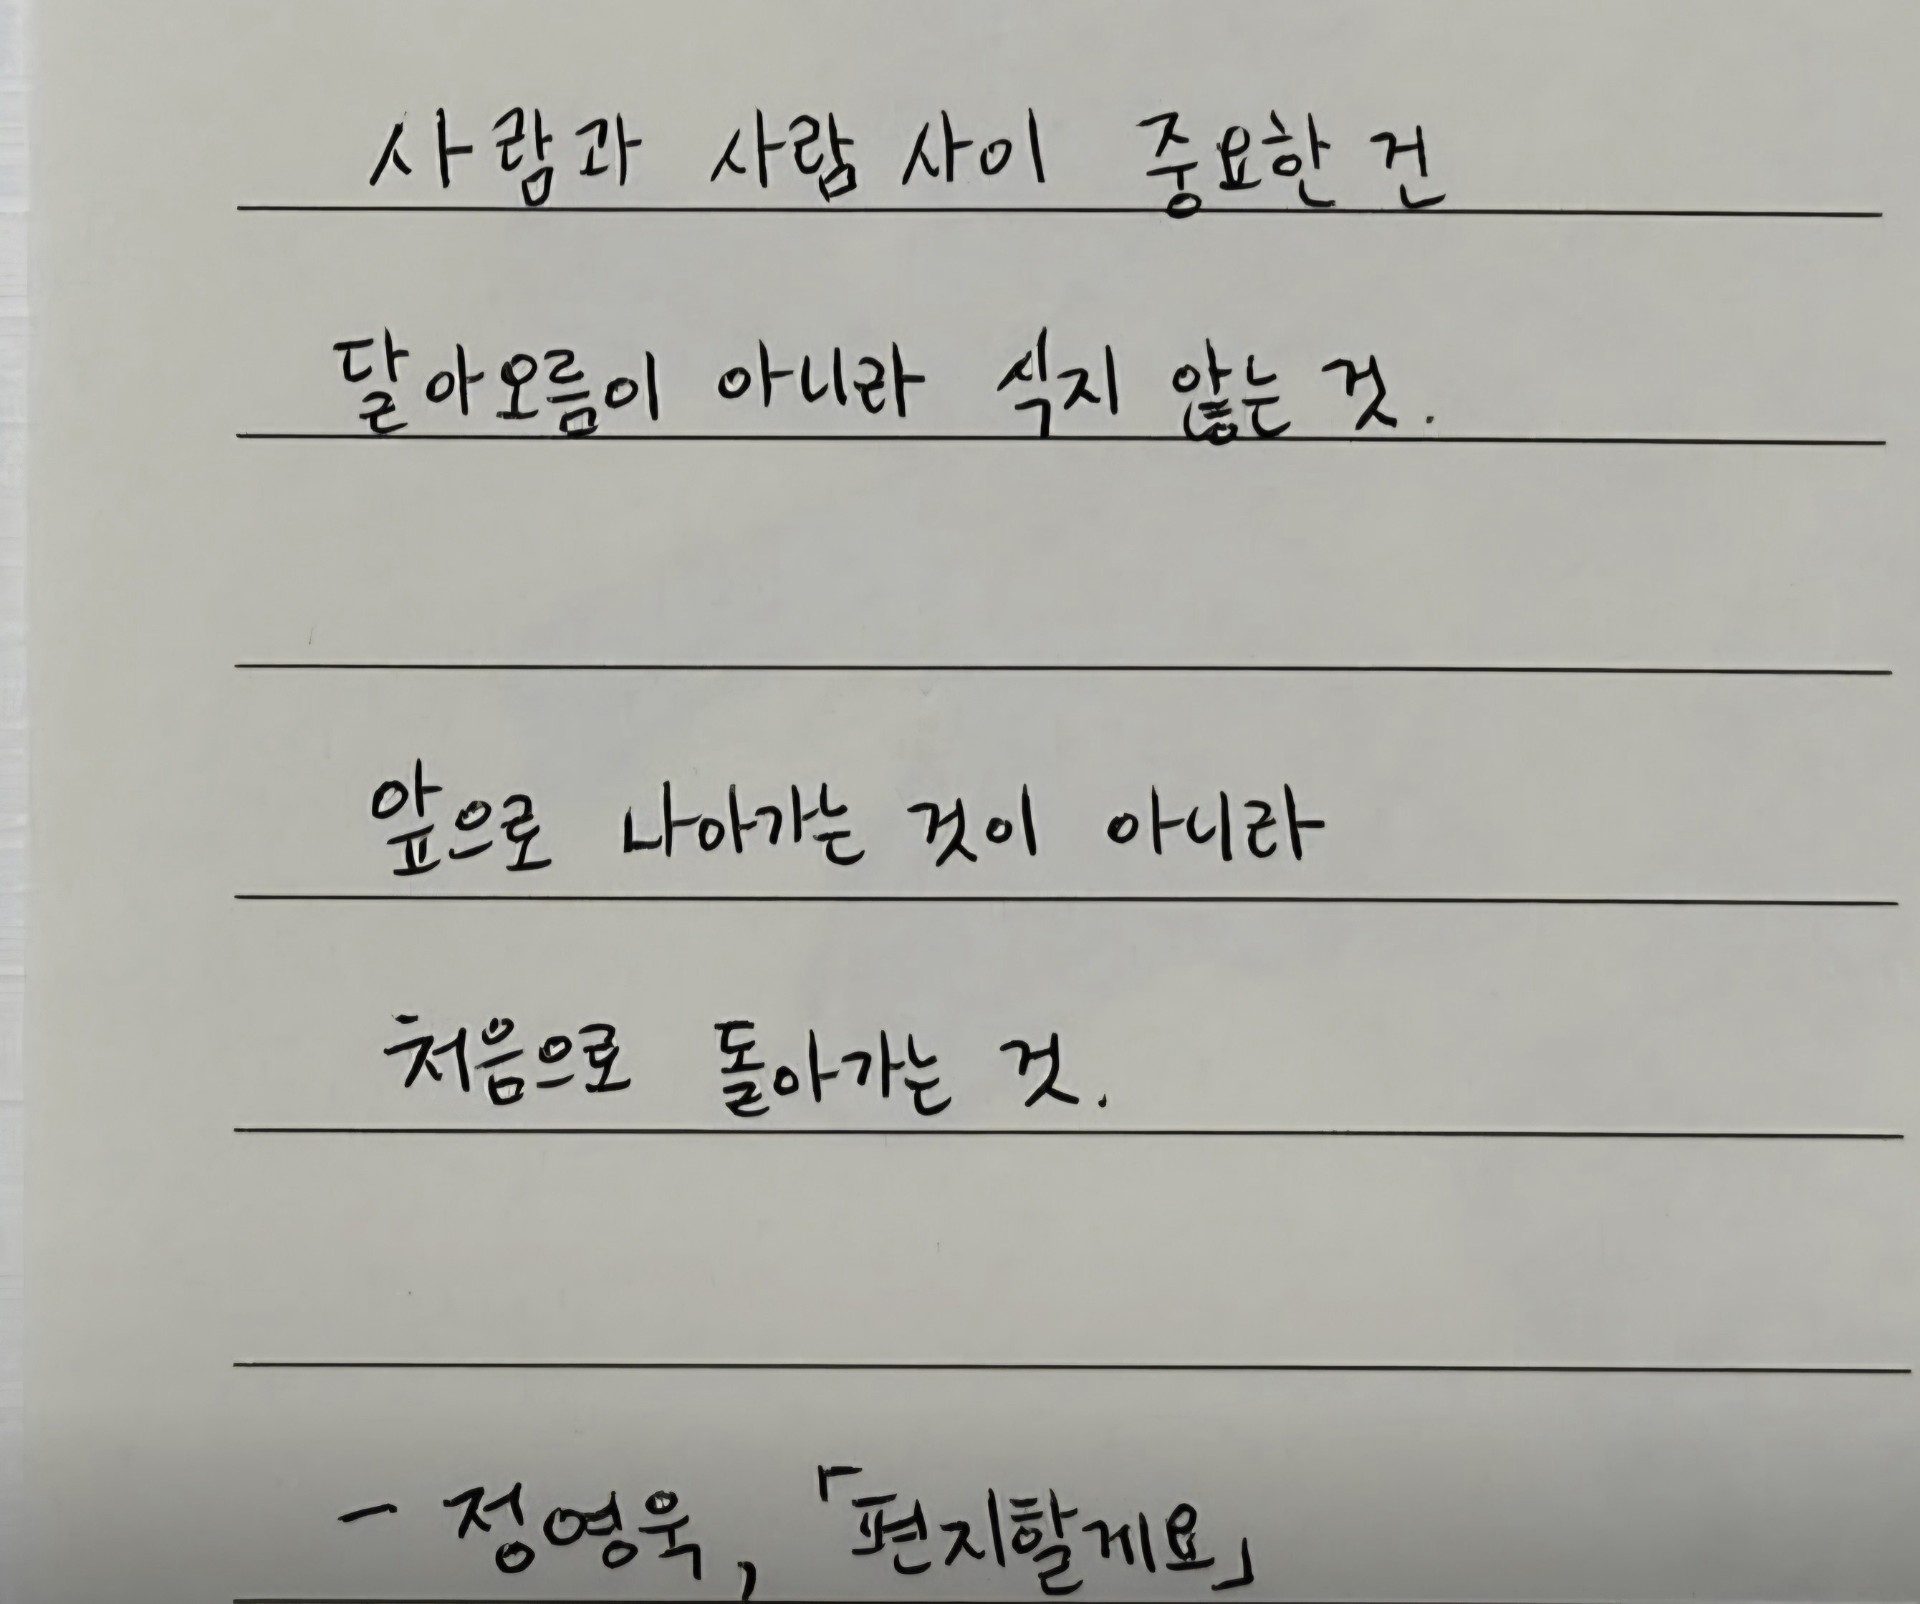 사람과 사람 사이 중요한 건
달아오름이 아니라 식지 않는 것.
앞으로 나아가는 것이 아니라
처음으로 돌아가는 것.
- 정영욱, 「편지할게요」